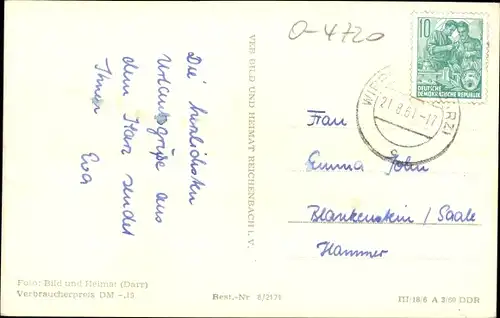 O-4720
10
DEUTSCHE
DEMOKRATISCHE REPUBLIK
21.8.61.-17
Die herzlichsten
Urlaubsgrüße aus
dem Harz sendet
Ihnen Eva
VEB BILD UND HEIMAT REICHENBACH i. V.
Frau
Emma John
Blankenstein / Saale
Hammer
Foto: Bild und Heimat (Darr)
Verbraucherpreis DM -.15
Best.-Nr 8/2171
III/18/6 A 3/60 DDR